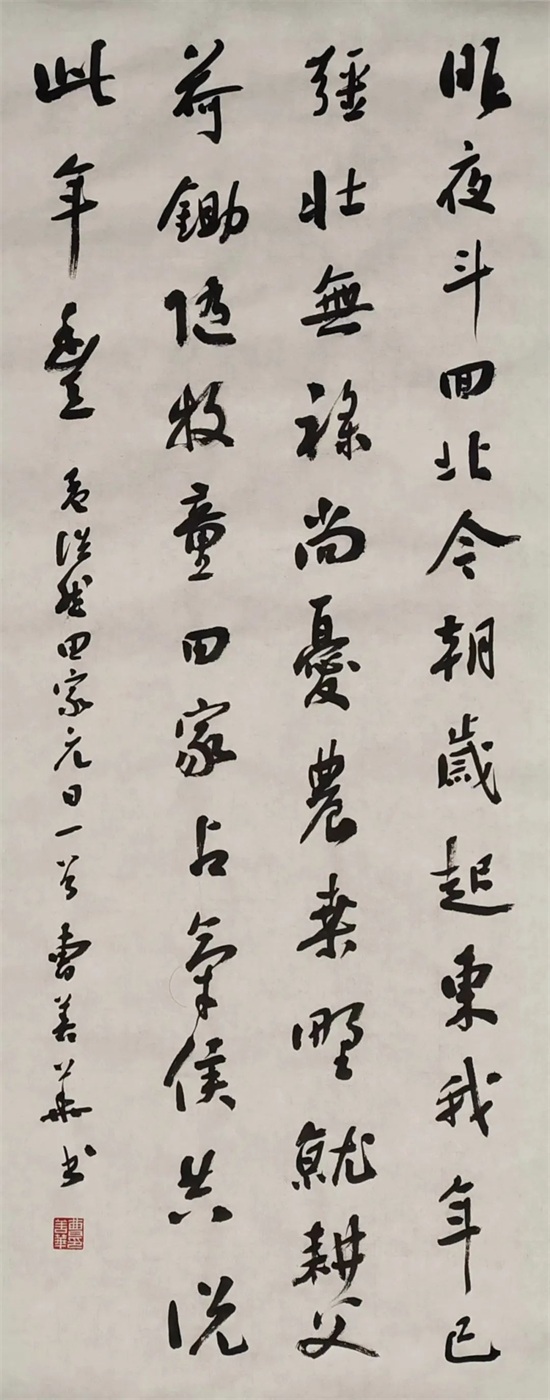 昨夜斗回北今朝歲起東我年已
彊壯無祿尚憂農桑野就耕父
荷鋤隨牧童田家占氣候共說
此年豐 孟浩然田家元日一首 曹善華書